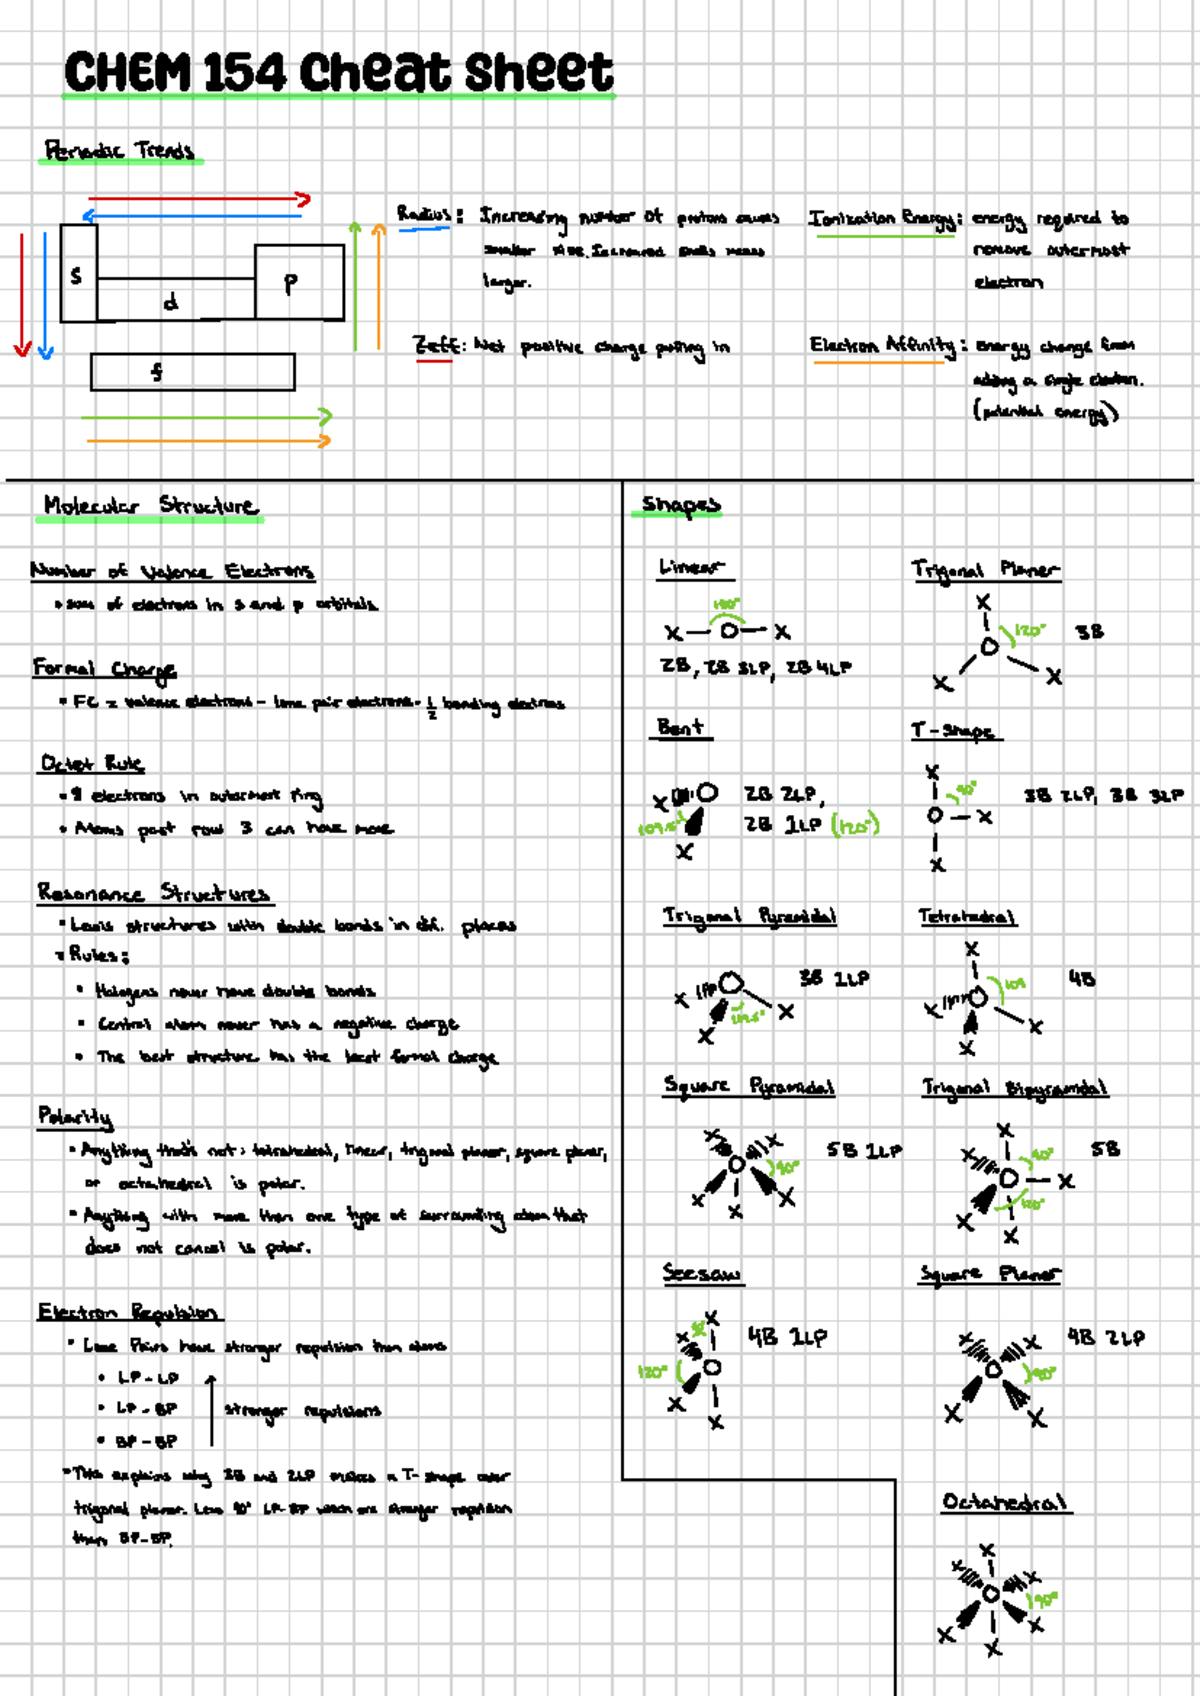 CHEM 154 Cheat sheet
Periodic Trends
S
d
p
f
Radius: Increasing number of protons causes
smaller size. Increased shells means
larger.
Zeff: Net positive charge pulling in
Ionization Energy: energy required to
remove outermost
electron
Electron Affinity: energy change from
adding a single electron.
(potential energy)
Molecular Structure
Number of Valence Electrons
• sum of electrons in s and p orbitals
Formal Charge
• FC = valence electrons - lone pair electrons - 1/2 bonding electrons
Octet Rule
• 8 electrons in outermost ring
• Atoms past row 3 can have more
Resonance Structures
• Lewis structures with double bonds in dif. places
• Rules:
• Halogens never have double bonds
• Central atom never has a negative charge
• The best structure has the least formal charge
Polarity
• Anything that's not: tetrahedral, linear, trigonal planer, square planer,
or octahedral is polar.
• Anything with more than one type of surrounding atom that
does not cancel is polar.
Electron Repulsion
• Lone Pairs have stronger repulsion than atoms
• LP - LP
• LP - BP
• BP - BP
stronger repulsions
• This explains why 3B and 2LP makes a T-shape over
trigonal planer. Less 90° LP-BP which are stronger repulsion
than BP-BP.
Shapes
Linear
180°
X — O — X
2B, 2B 3LP, 2B 4LP
Trigonal Planer
X
O 120° 3B
X X
Bent
X O 2B 2LP,
109.5° 2B 1LP (120°)
X
T-Shape
X
90° 3B 2LP, 3B 3LP
O — X
X
Trigonal Pyramidal
O 3B 1LP
X X
109.5°
X
Tetrahedral
X
109 4B
X O
X
X
Square Pyramidal
X X 5B 1LP
O 90°
X X
X
Trigonal Bipyramidal
X 5B
X 90°
O — X
120°
X
X
Seesaw
X
X 4B 1LP
120° O
X
X
Square Planer
X X 4B 2LP
O 90°
X X
Octahedral
X
X X
O 90°
X X
X